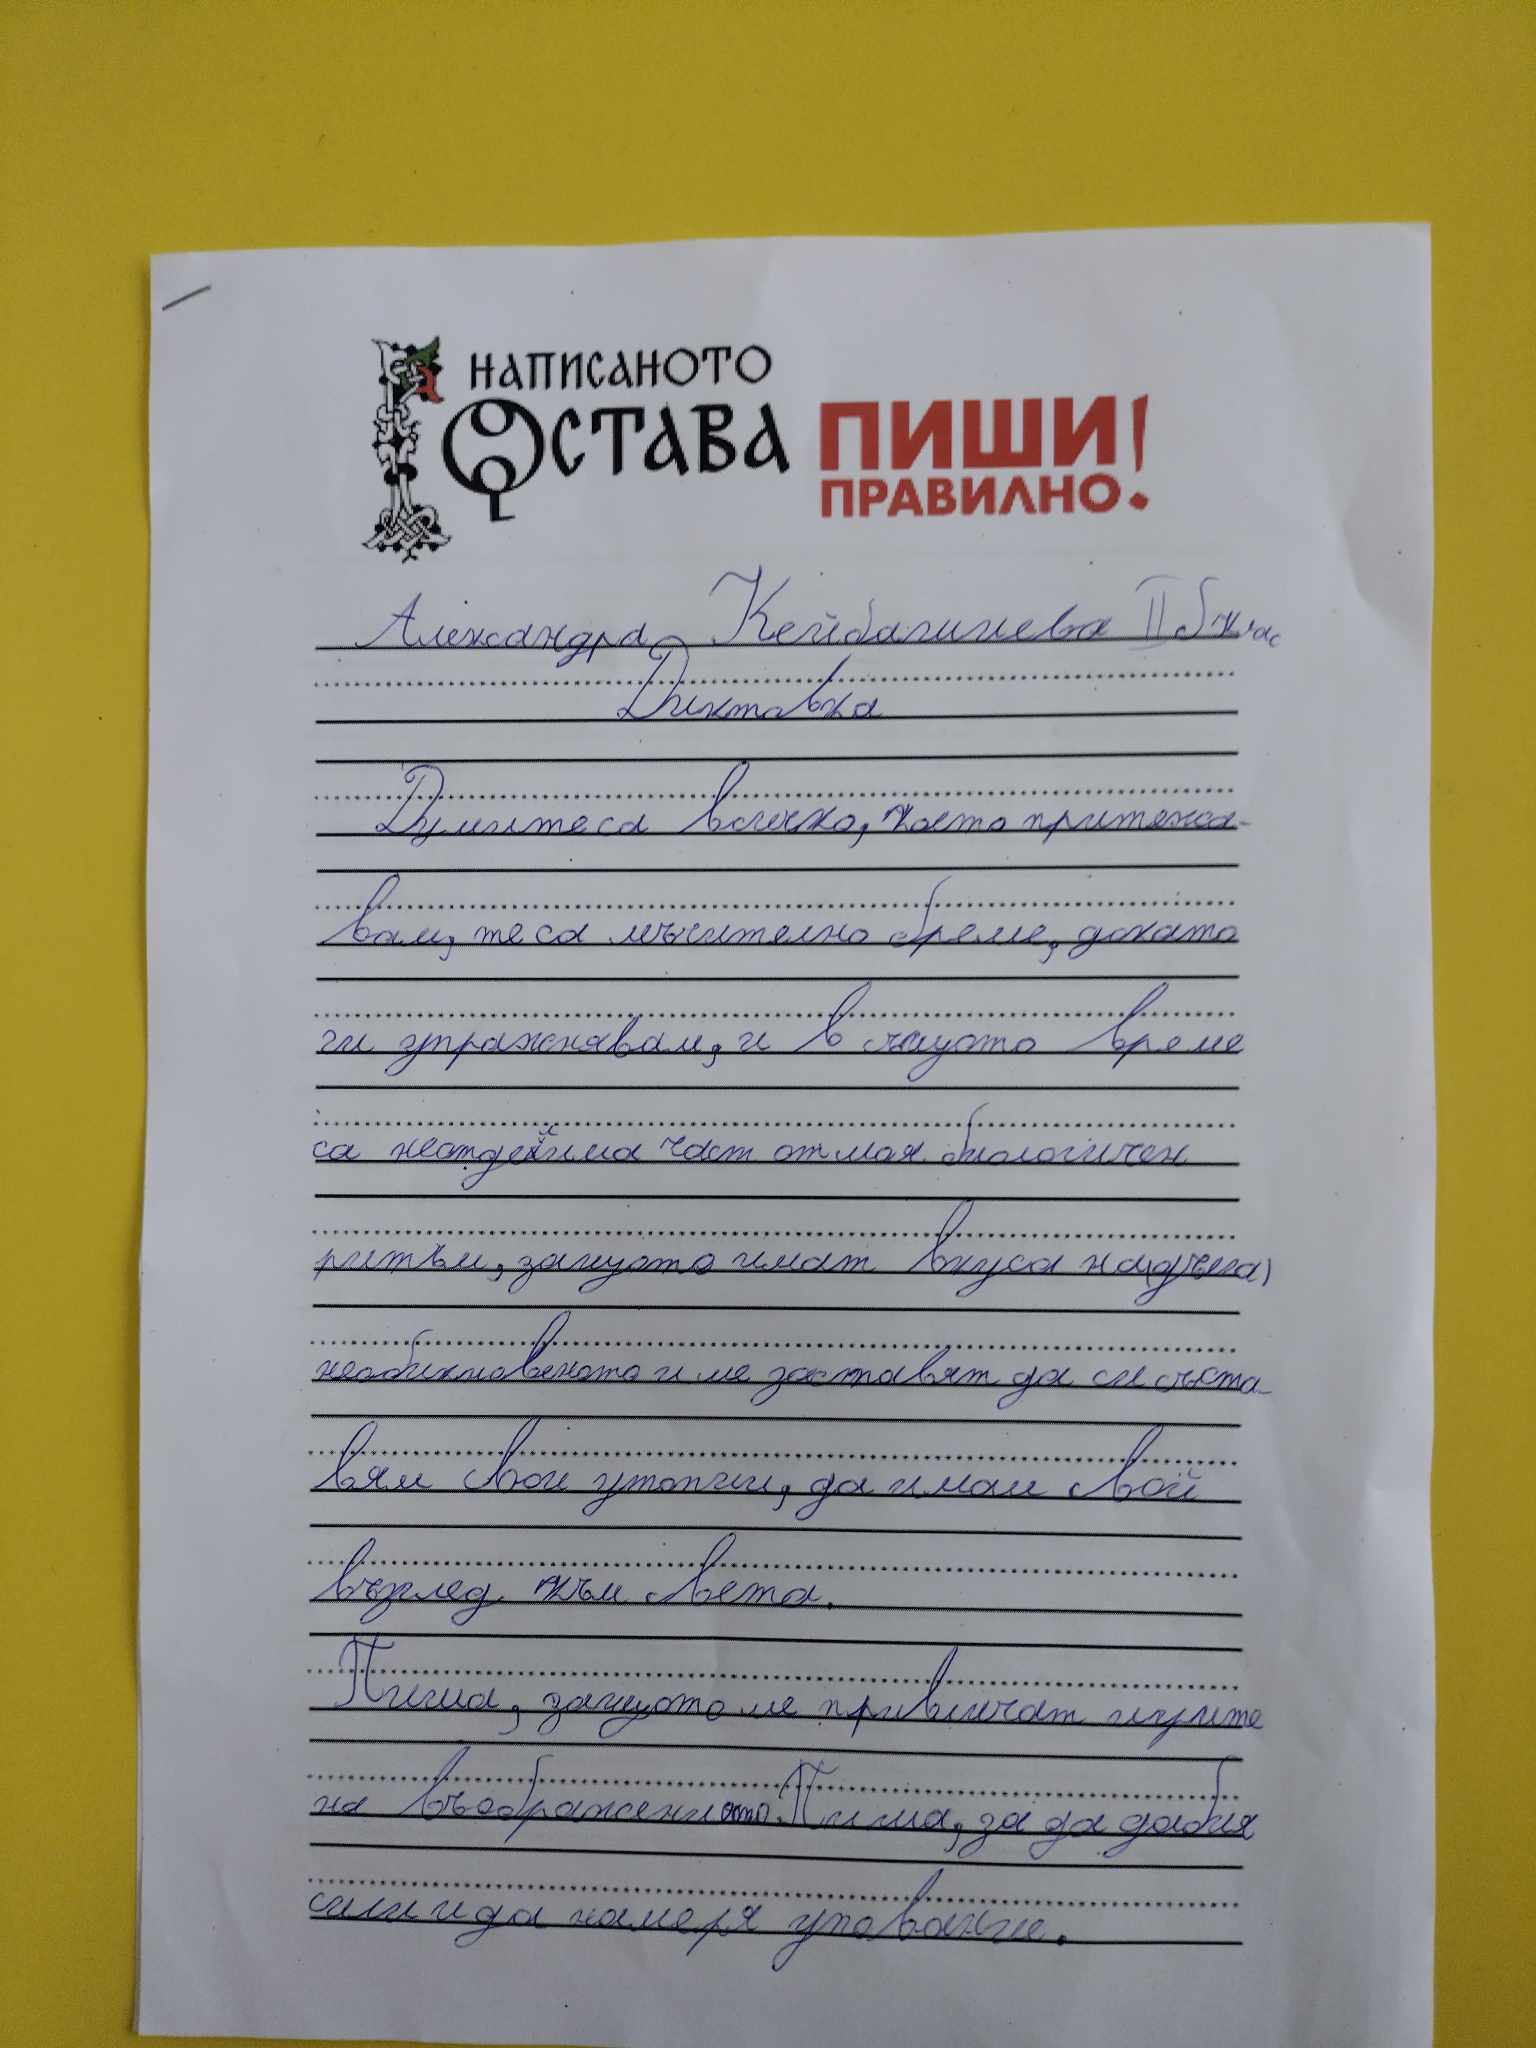 НАПИСАНОТО
ОСТАВА
ПИШИ!
ПРАВИЛНО.
Александра Кейбашиева II б клас
Диктовка
Думитеса всичко, което притежа-
вам, теса мъчително бреме, докато
ги упражнявам, и в същото време
са неотдейима част от моя биологичен
ритъм, защото имат вкуса на(дъга)
необикновеното и ме заставят да си съста-
вям свои утопии, да имам свой
възглед към света.
Пиша, защото ме привличат игрите
на въображението. Пиша, за да добия
сили и да намеря упование.